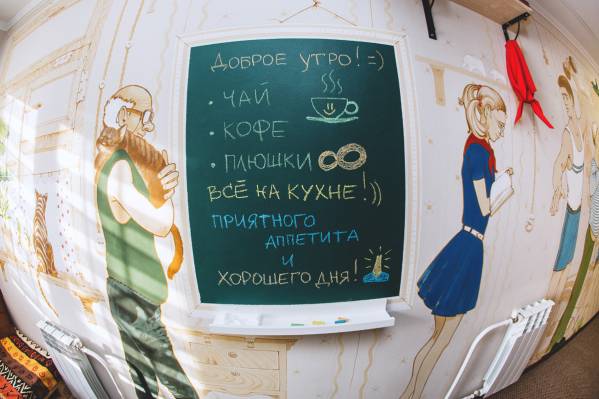 ДОБРОЕ УТРО! =)
• ЧАЙ
• КОФЕ
• ПЛЮШКИ
ВСЁ НА КУХНЕ!))
ПРИЯТНОГО
АППЕТИТА
И
ХОРОШЕГО ДНЯ!